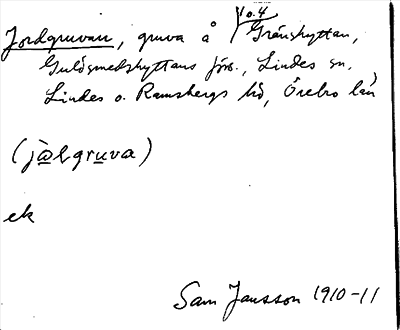 Jordgruvan, gruva å 1/10 o. 4 Gränshyttan,
Guldsmedshyttans förs., Lindes sn,
Lindes o. Ramsbergs bd, Örebro län
(jàlgruva)
ek
Sam Jansson 1910-11